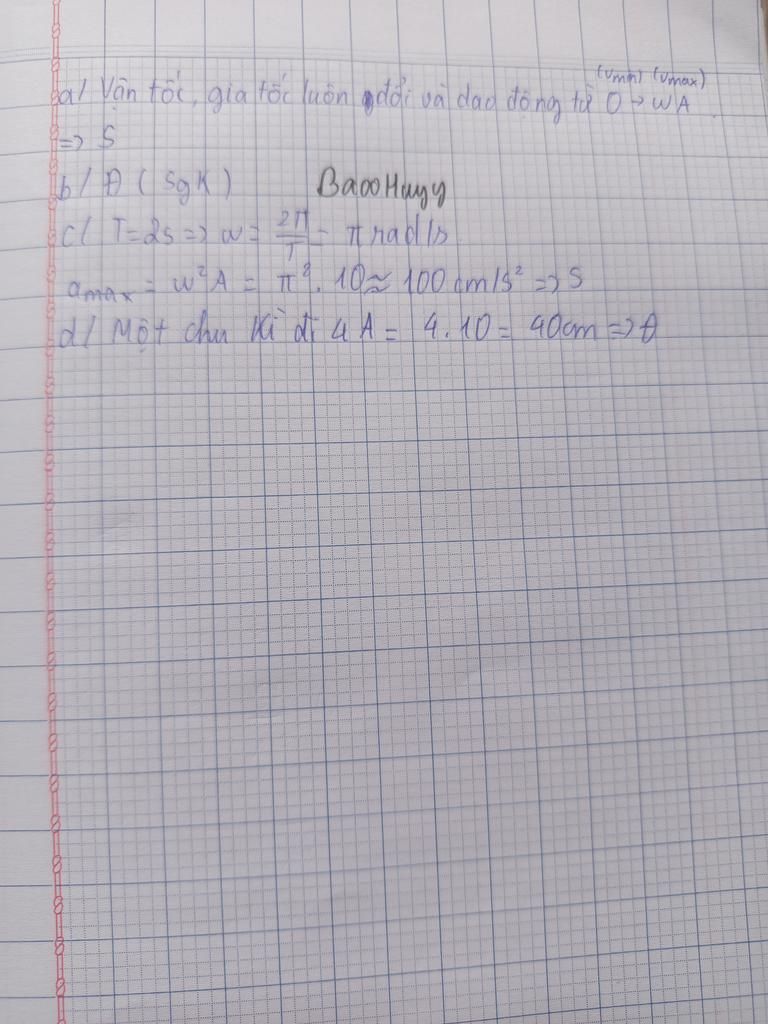 (vmin) (vmax)
a/ Vận tốc, gia tốc luôn đổi và dao động từ 0 → wA
=> S
b/ Đ ( SgK )
BaooHuyy
c/ T=2s => w = 2π/T = π rad/s
amax = w²A = π². 10 ≈ 100 cm/s² => S
d/ Một chu kì đi 4A = 4.10 = 40cm => Đ